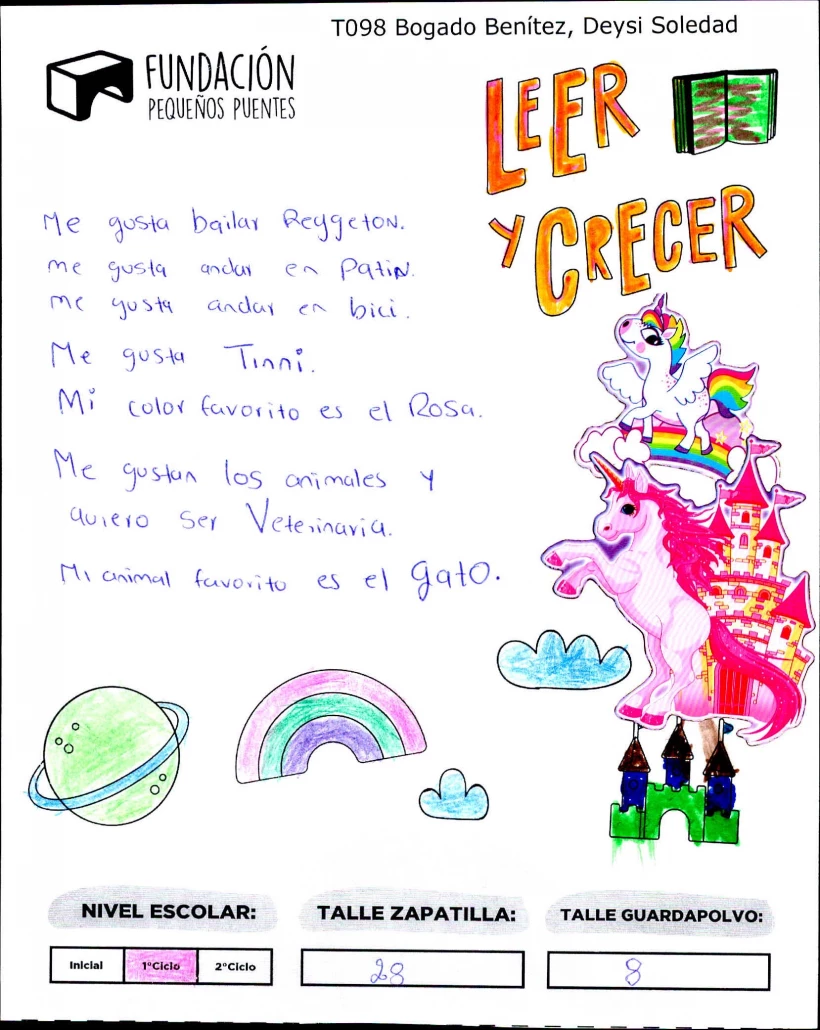 T098 Bogado Benítez, Deysi Soledad
FUNDACIÓN
PEQUEÑOS PUENTES
LEER
Y CRECER
Me gusta bailar Reggeton.
me gusta andar en Patin.
me gusta andar en bici.
Me gusta Tinni.
Mi color favorito es el Rosa.
Me gustan los animales y
quiero ser Veterinaria.
Mi animal favorito es el gato.
NIVEL ESCOLAR:
TALLE ZAPATILLA:
TALLE GUARDAPOLVO:
Inicial
1ºCiclo
2ºCiclo
28
8